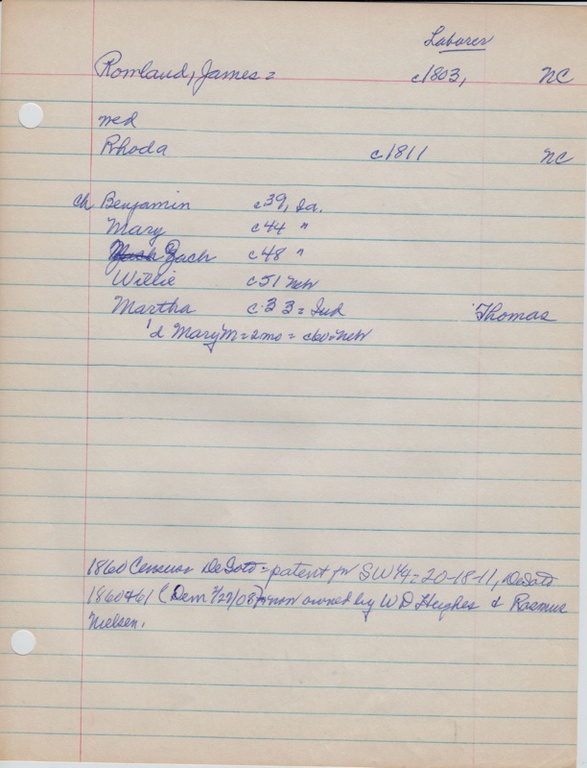 Laborer
Romland, James = c1803, NC
med
Rhoda c1811 NC
ch Benjamin c39, Ia.
Mary c44 "
Zach c48 "
Willie c51 Neb
Martha c33 = Ind Thomas
'd Mary M = 2mo = c60 = Neb
1860 Census DeSoto = patent for SW 1/4 = 20-18-11, DeSoto
1860+61 (Dem 2/27/08) = now owned by W D Hughes & Rasmus
Nielsen.